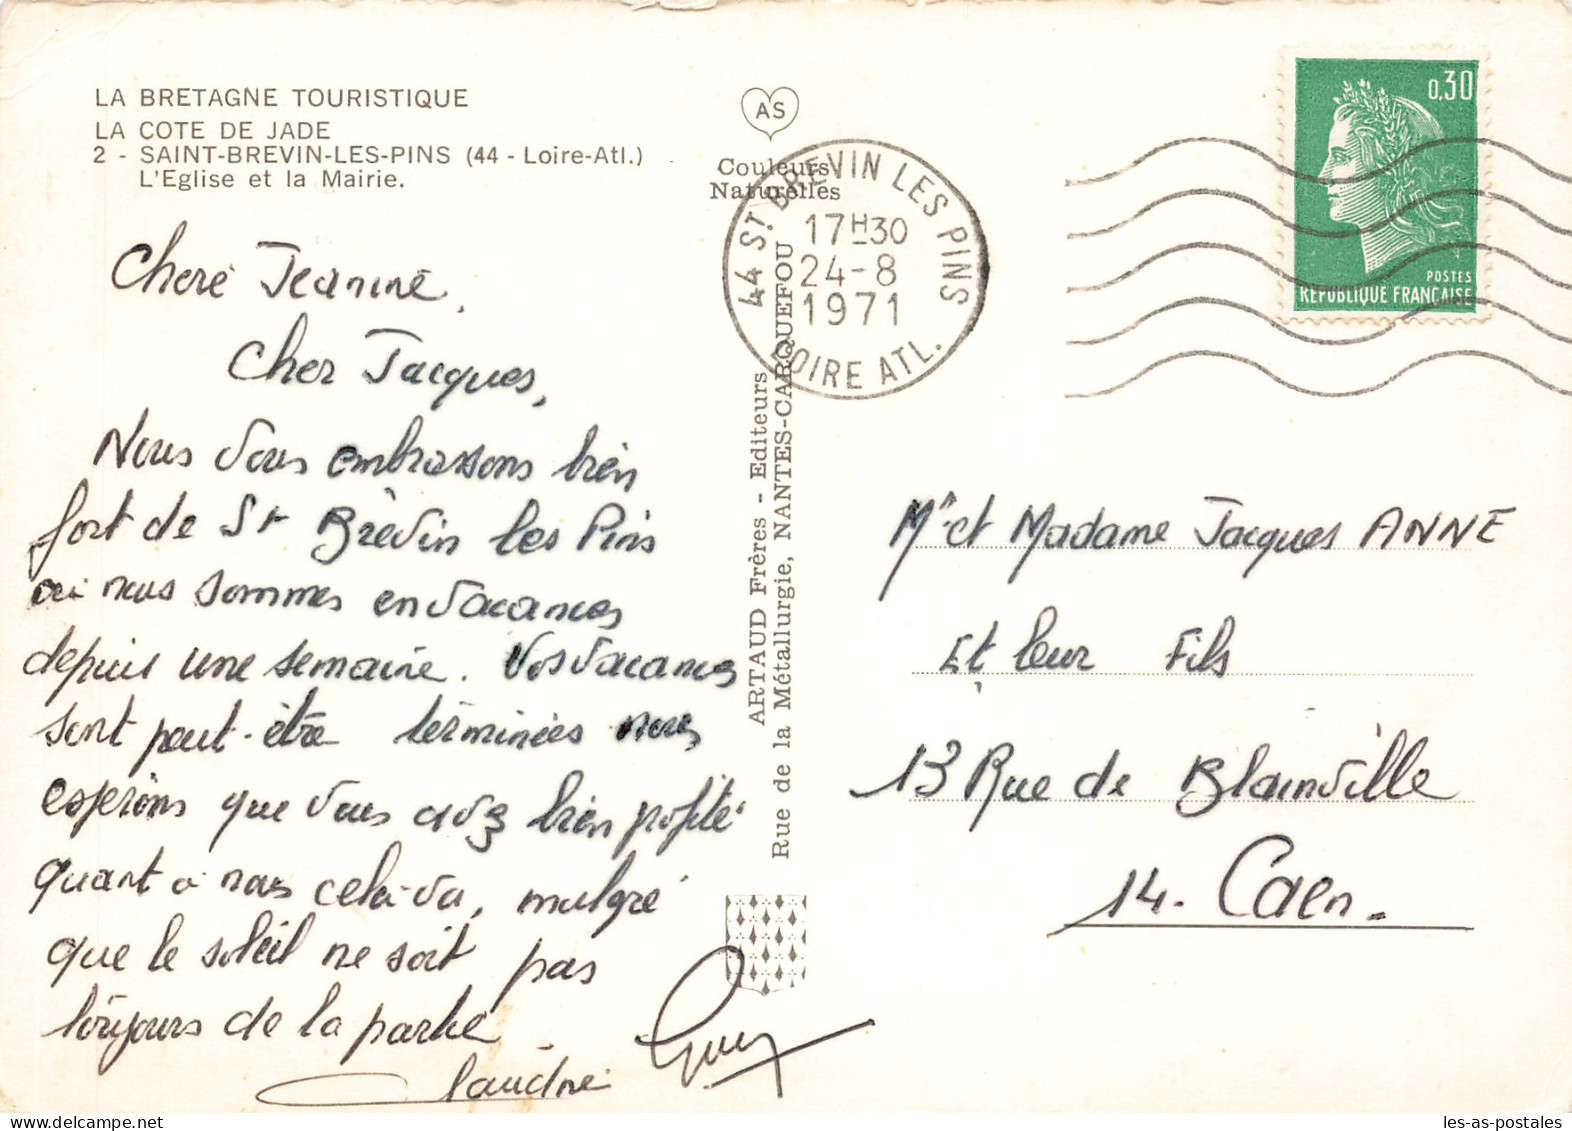 LA BRETAGNE TOURISTIQUE
LA COTE DE JADE
2 - SAINT-BREVIN-LES-PINS (44 - Loire-Atl.)
L'Eglise et la Mairie.
Chère Jeanine,
Cher Jacques,
Nous vous embrassons bien
fort de St Brévin les Pins
où nous sommes en vacances
depuis une semaine. Vos vacances
sont peut-être terminées nous
espérons que vous avez bien profité
quant à nous cela va, malgré
que le soleil ne soit pas
toujours de la partie
Claudine Guy
AS
Couleurs
Naturelles
ARTAUD Frères - Editeurs
Rue de la Métallurgie, NANTES-CARQUEFOU
44 ST BREVIN LES PINS
17H30
24-8
1971
LOIRE ATL.
0,30
POSTES
REPUBLIQUE FRANÇAISE
Mr et Madame Jacques ANNE
Et leur Fils
13 Rue de Blainville
14. Caen.
delcampe.net
les-as-postales